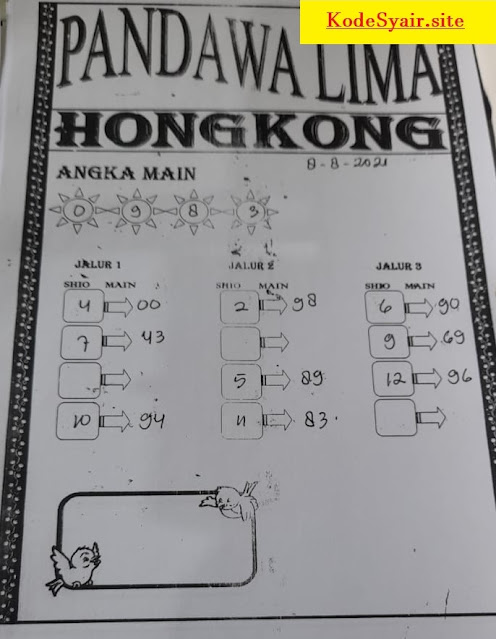 KodeSyair.site
PANDAWA LIMA
HONGKONG
8-8-2021
ANGKA MAIN
0 9 8 3
JALUR 1 JALUR 2 JALUR 3
SHIO MAIN SHIO MAIN SHIO MAIN
4 00 2 98 6 90
7 43 9 69
5 89 12 96
10 94 11 83